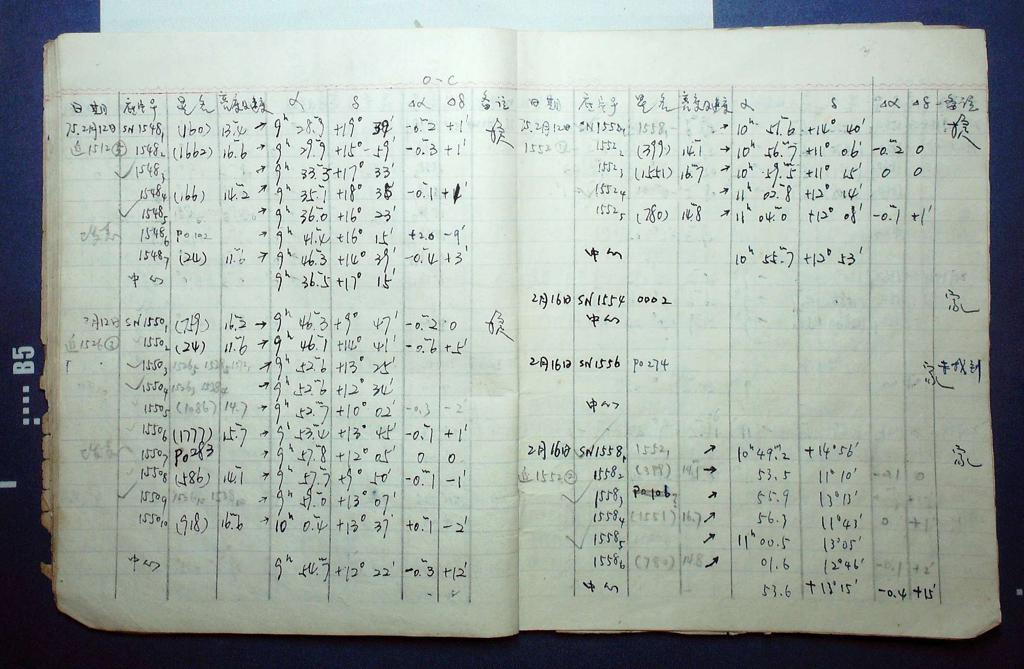 O-C
日期 底片号 星名 亮度及速度 α δ Δα Δδ 备注
75.2月12日 SN1548₁ (160) 13.4 → 9ʰ 28.9ᵐ +19° 39′ -0.2 +1′
追1512⑤ 1548₂ (1662) 16.6 → 9ʰ 29.9ᵐ +15° 59′ -0.3 +1′
1548₃ → 9ʰ 33.3ᵐ +17° 33′
1548₄ (166) 14.2 → 9ʰ 35.1ᵐ +18° -0.1
1548₅ → 9ʰ 36.0ᵐ +16° 23′
1548₆ PO102 9ʰ 41.4ᵐ +16° 15′ +2.0 -9′
1548₇ (24) 11.6 → 9ʰ 46.3ᵐ +14° 39′ -0.4 +3′
中心 9ʰ 36.5ᵐ +17° 15′
2月12日 SN1550₁ (759) 16.2 → 9ʰ 46.3ᵐ +9° 47′ -0.2 0
追1526② 1550₂ (24) 11.6 → 9ʰ 46.1ᵐ +14° 41′ -0.6 +5′
1550₃ → 9ʰ 52.6ᵐ +13° 25′
1550₄ → 9ʰ 52.6ᵐ +12° 34′
1550₅ (1086) 14.7 → 9ʰ 52.7ᵐ +10° 02′ -0.3 -2′
1550₆ (1777) 15.7 → 9ʰ 53.4ᵐ +13° 45′ -0.1 +1′
1550₇ PO283 → 9ʰ 57.8ᵐ +12° 05′ 0 0
1550₈ (586) 14.1 → 9ʰ 57.7ᵐ +9° 50′ -0.1 -1′
1550₉ → 9ʰ 59.0ᵐ +13° 07′
1550₁₀ (918) 16.6 → 10ʰ 0.4ᵐ +13° 37′ +0.1 -2′
中心 9ʰ 54.7ᵐ +12° 22′ -0.3 +12′
日期 底片号 星名 亮度及速度 α δ Δα Δδ 备注
75.2月12日 SN1552₁ → 10ʰ 51.6ᵐ +14° 40′
1552₂ (399) 14.1 → 10ʰ 56.7ᵐ +11° 06′ -0.2 0
1552₃ (1551) 16.7 → 10ʰ 59.5ᵐ +11° 15′ 0 0
1552₄ → 11ʰ 02.8ᵐ +12° 14′
1552₅ (780) 14.8 11ʰ 04.0ᵐ +12° 08′ -0.1 +1′
中心 10ʰ 55.7ᵐ +12° 53′
2月16日 SN1554 0002
中心
2月16日 SN1556 PO274 未找到
中心
2月16日 SN1558₁ 1552₁ ↗ 10ʰ49.2ᵐ +14°56′
追1552② 1558₂ (399) 14.1 → 53.5 11°10′ -0.1 0
1558₃ PO106 ↗ 55.9 13°13′
1558₄ (1551) 16.7 ↗ 56.3 11°43′ 0 +1′
1558₅ ↗ 11ʰ00.5 13°05′
1558₆ (780) 14.8 ↗ 01.6 12°46′ -0.1 +2′
中心 53.6 +13°15′ -0.4 +15′
B5